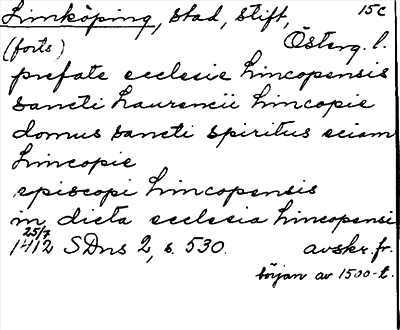 Linköping, stad, stift, 15c
(forts) Österg. l.
prefate ecclesie Lincopensis
sancti Laurencii Lincopie
domus sancti spiritus eciam
Lincopie
episcopi Lincopensis
in dicta ecclesia Lincopensi
25/7
1412 SDns 2, s. 530. avskr. fr.
början av 1500-t.